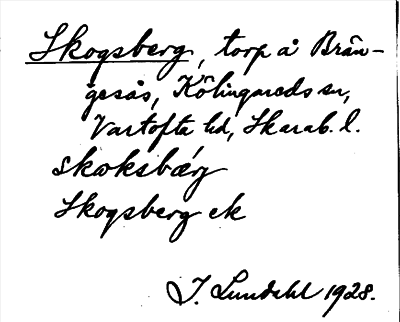 Skogsberg, torp å Brän-
gesås, Kölingareds sn,
Vartofta hd, Skarab. l.
skoksbærj
Skogsberg ek
J. Lundahl 1928.